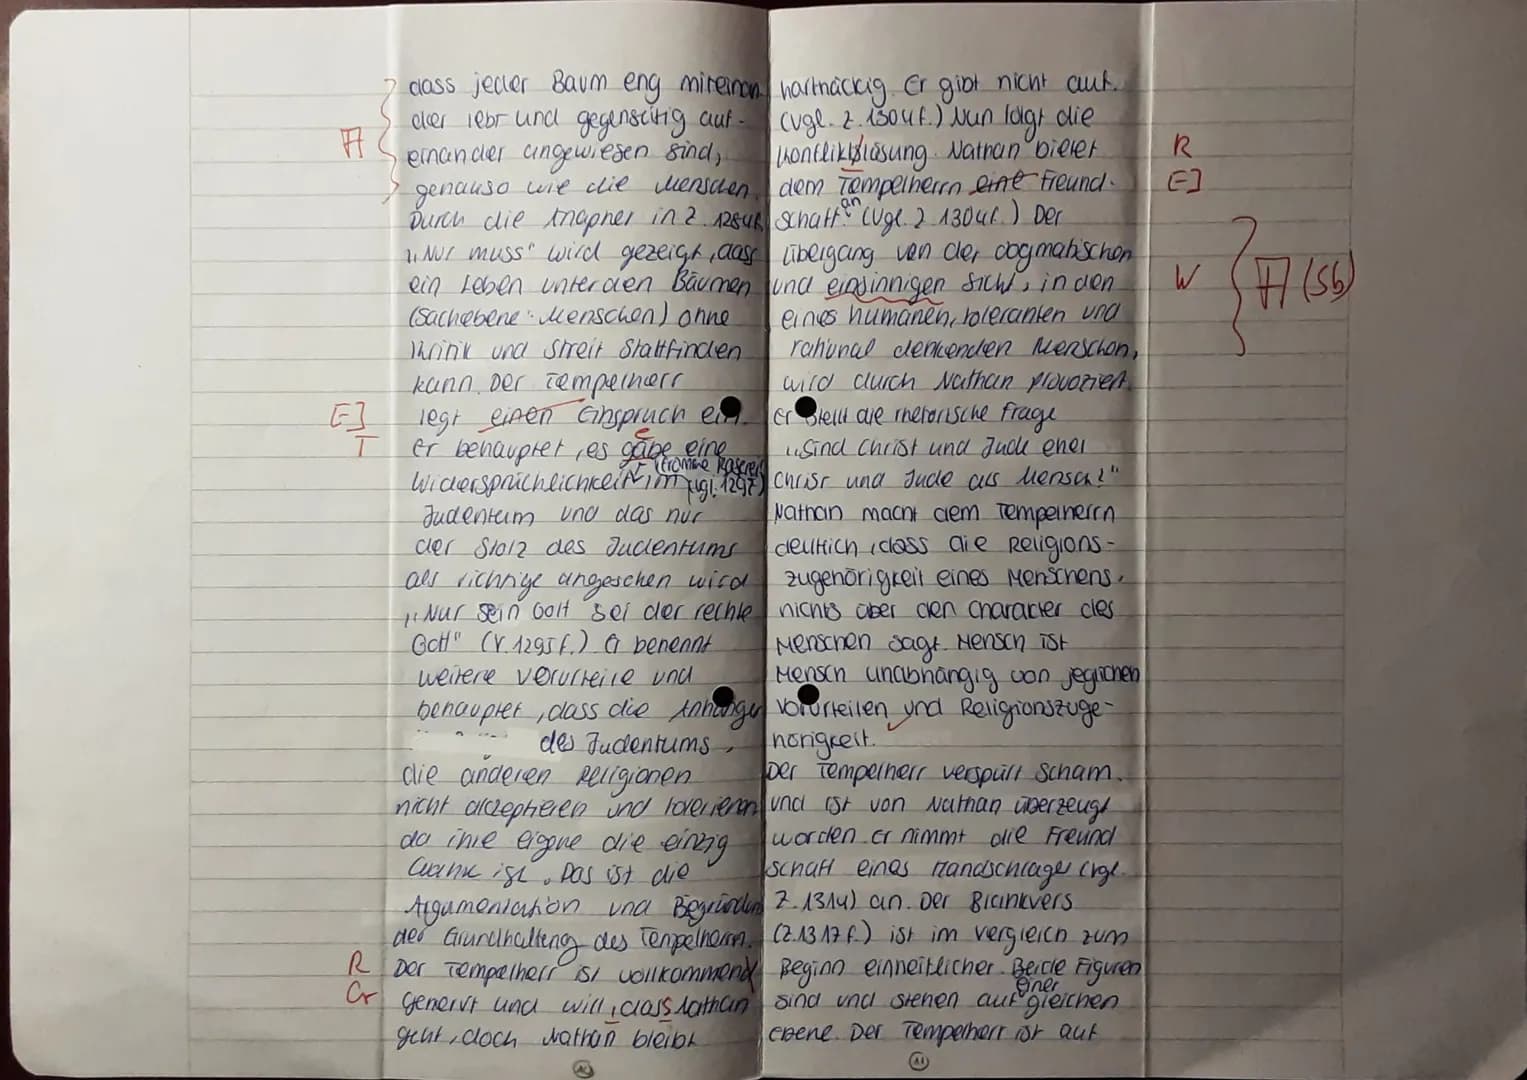 dass jeder Baum eng miteinan-
der lebt und gegenseitig auf-
einander angewiesen sind,
genauso wie die Menschen.
A
Durch die Anapher in Z. 1284f.
„Nur muss“ wird gezeigt, dass
ein Leben unter den Bäumen
(Sachebene: Menschen) ohne
Kritik und Streit stattfinden
kann. Der Tempelherr
legt einen Einspruch ein.
[-]
Er behauptet, es gäbe eine
e
T
Widersprüchlichkeit im
(fromme Raserei
vgl. 1297)
Judentum und das nur
der Stolz des Judentums
als richtige angesehen wird
„Nur sein Gott sei der rechte
Gott“ (V. 1295f.) Er benennt
weitere Vorurteile und
behauptet, dass die Anhänger
des Judentums,
die anderen Religionen
nicht akzeptieren und tolerieren
da ihre eigene die einzig
ist. Das ist die
Argumentation und Begründung
der Grundhaltung des Tempelherrn.
Der Tempelherr ist vollkommend
R
genervt und will, dass Nathan
Gr
geht, doch Nathan bleibt
10
hartnäckig. Er gibt nicht auf.
(vgl. Z. 1304f.) Nun folgt die
Konfliktslösung. Nathan bietet
R
dem Tempelherrn eine Freund-
[-]
schaft an. (vgl. Z. 1304f.) Der
Übergang von der dogmatischen
und einsinnigen Sicht, in den
W
A (Sb)
eines humanen, toleranten und
rational denkenden Menschen,
wird durch Nathan provoziert.
Er stellt die rhetorische Frage
„Sind Christ und Jude eher
Christ und Jude als Mensch?“
Nathan macht dem Tempelherrn
deutlich, dass die Religions-
zugehörigkeit eines Menschens,
nichts über den Character des
Menschen sagt. Mensch ist
Mensch unabhängig von jeglichen
Vorurteilen und Religionszuge-
hörigkeit.
Der Tempelherr verspürt Scham.
und ist von Nathan überzeugt
worden. Er nimmt die Freund
schaft eines Handschlages (vgl.
Z. 1314) an. Der Blankvers
(Z. 1317f.) ist im Vergleich zum
Beginn einheitlicher. Beide Figuren
sind und stehen auf einer gleichen
Ebene. Der Tempelherr ist auf
11